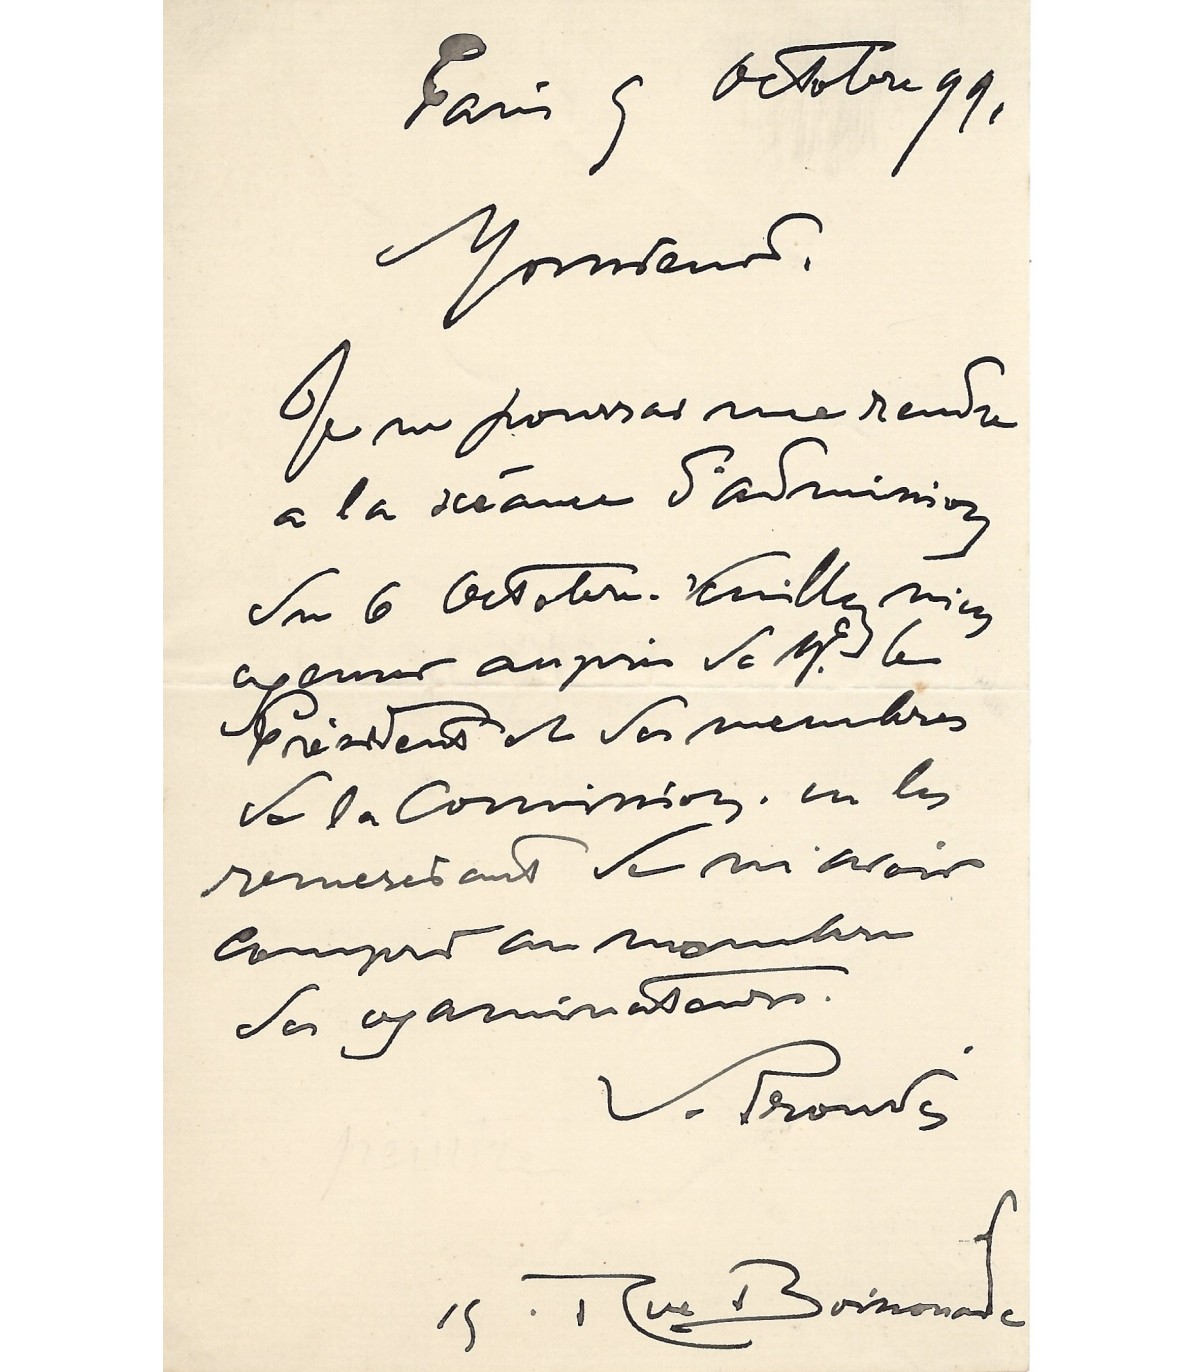 Paris 5 Octobre 99.
Monsieur.
Je ne pourrai me rendre
a la séance d'admission
du 6 Octobre. Veuillez m'en
excuser auprès de Mr le
Président et des membres
de la Commission. en les
remerciant de m'avoir
compris au nombre
des examinateurs.
V. Prouvé
15. Rue Boissonade